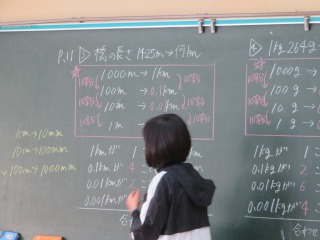 P.11 ▷ 橋の長さ 1425m→何km
1000m→1km
100m→0.1km
10m→0.01km
1m→
10分の1
10分の1
10分の1
10分の1
10分の1
1cm→10mm
10cm→100mm
100cm→1000mm
1kmが 1
0.1kmが 4
0.01kmが 2
0.001kmが
合わ
1kg264g
1000g→
100g→
10g→
1g→
10分の1
10分の1
10分の1
1kgが 1
0.1kgが 2
0.01kgが 6
0.001kgが
合わせ